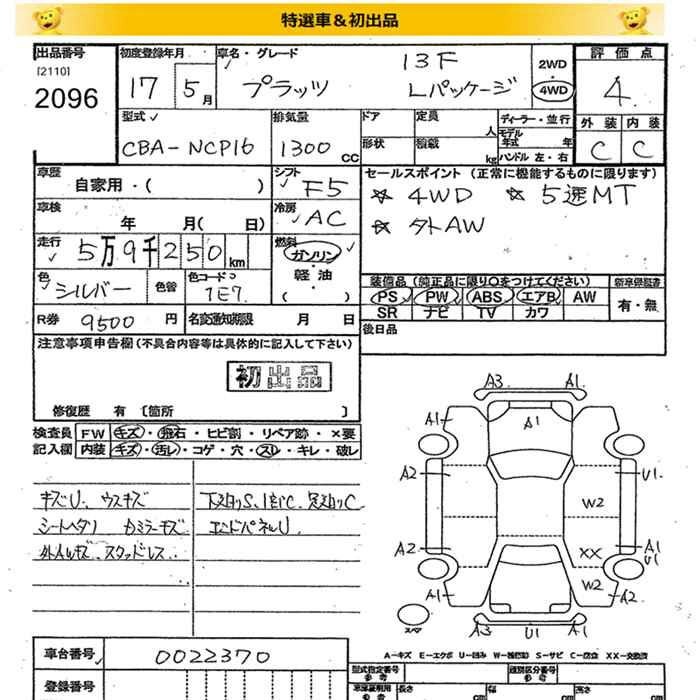 特選車＆初出品
出品番号 初度登録年月 車名・グレード 評価点
[2110] 13F 2WD
2096 17 5月 プラッツ Lパッケージ 4WD 4
型式 排気量 ドア 定員 ディーラー・並行 外装 内装
人 モデル年式 年
CBA-NCP16 1300cc 形状 積載 kg ハンドル 左・右 C C
車歴 シフト セールスポイント (正常に機能するものに限ります)
自家用・( ) F5 ☆ 4WD ☆ 5速MT
車検 冷房 ☆ 外AW
年 月( 日) AC
走行 5万9千250km 燃料 ガソリン
軽油
( )
色 シルバー 色替 色コード 1E7 装備品 (純正品に限り○をつけてください) 新車保証書
PS PW ABS エアB AW 有・無
SR ナビ TV カワ
R券 9500円 名変通知期限 月 日 後日品
注意事項申告欄 (不具合内容等は具体的に記入して下さい)
初出品
修復歴 有 [箇所 ]
検査員 FW キズ・飛石・ヒビ割・リペア跡・×要
記入欄 内装 キズ・汚レ・コゲ・穴・スレ・キレ・破レ
キズU、ウスキズ
シートヘタリ
外AWキズ スタッドレス
エンドパネルU
A3 A1
A1 A1 A1
A2 U1
W2
A2 XX A1
U1
W2
A1 A2
スペア
A3 U1 A1
A-キズ E-エクボ U-凹み W-補修跡 S-サビ C-腐食 XX-交換済
車台番号 0022370 型式指定番号 類別区分番号
参考 参考
登録番号 長さ cm 幅 cm 高さ cm
参考